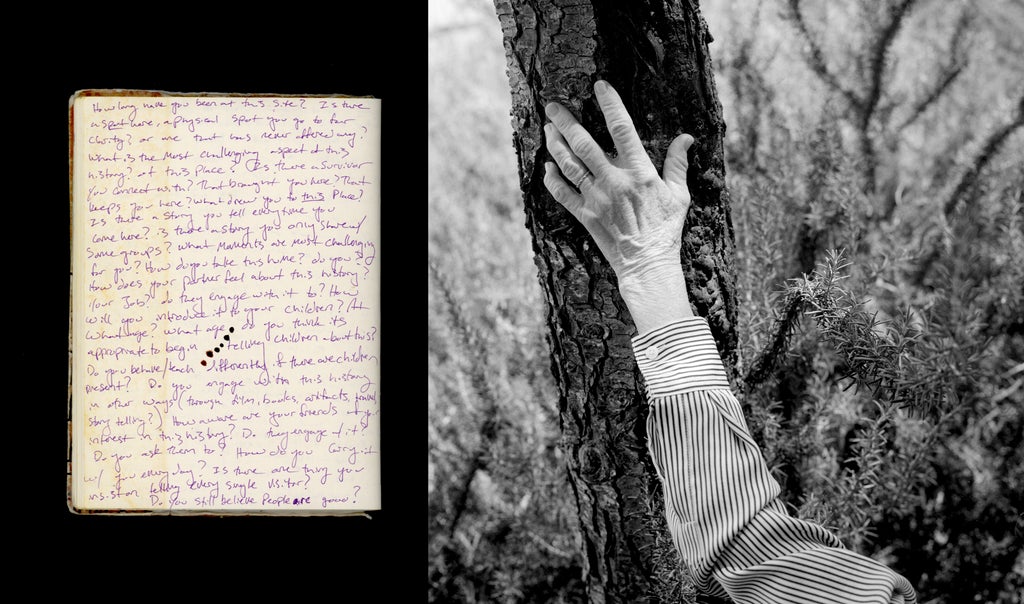 How long have you been at this site? Is there
a spot here, a physical spot you go to for
clarity? or one that has never offered any?
What is the most challenging aspect of this
history? of this place? Is there a survivor
you connect with? That brought you here? That
keeps you here? What drew you to this place?
Is there a story you tell everytime you
come here? is there a story you only share w/
some groups? What moments are most challenging
for you? How do you take this home? do you?
How does your partner feel about this history?
Your job? do they engage with it to? How
will you introduce it to your children? At
what age? what age do you think its
appropriate to begin telling children about this?
Do you behave/teach differently if there are children
present? Do you engage with this history
in other ways (through film, books, artifacts,
story telling?) How aware are your friends of your
interest in this history? Do they engage w/ it?
Do you ask them to? How do you carry it
w/ you everyday? Is there one thing you
insist on telling every single visitor?
Do you still believe people are good?